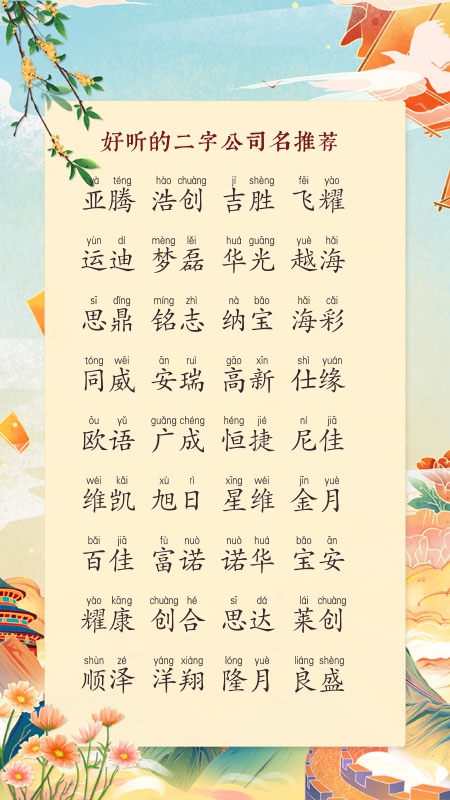 好听的二字公司名推荐
yà téng hào chuàng jí shèng fēi yào
亚腾 浩创 吉胜 飞耀
yùn dí mèng lěi huá guāng yuè hǎi
运迪 梦磊 华光 越海
sī dǐng míng zhì nà bǎo hǎi cǎi
思鼎 铭志 纳宝 海彩
tóng wēi ān ruì gāo xīn shì yuán
同威 安瑞 高新 仕缘
ōu yǔ guǎng chéng héng jié ní jiā
欧语 广成 恒捷 尼佳
wéi kǎi xù rì xīng wéi jīn yuè
维凯 旭日 星维 金月
bǎi jiā fù nuò nuò huá bǎo ān
百佳 富诺 诺华 宝安
yào kāng chuàng hé sī dá lái chuàng
耀康 创合 思达 莱创
shùn zé yáng xiáng lóng yuè liáng shèng
顺泽 洋翔 隆月 良盛